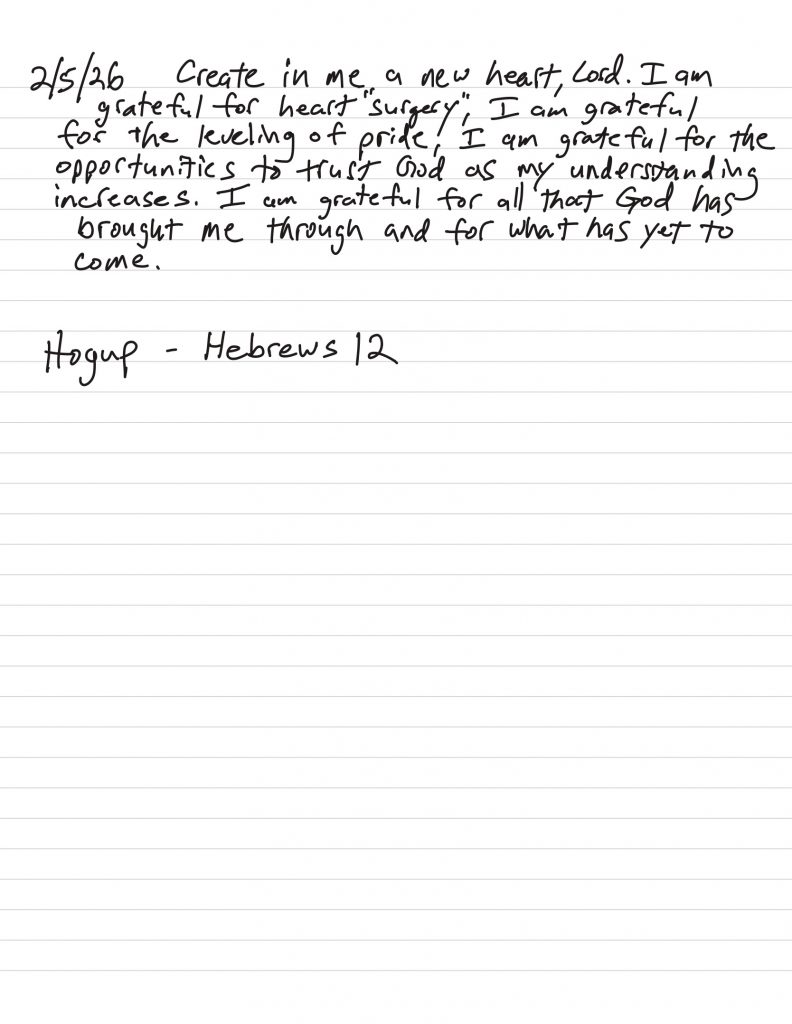 2/5/26 Create in me a new heart, Lord. I am
grateful for heart "surgery", I am grateful
for the leveling of pride! I am grateful for the
opportunities to trust God as my understanding
increases. I am grateful for all that God has
brought me through and for what has yet to
come.
Hogup - Hebrews 12